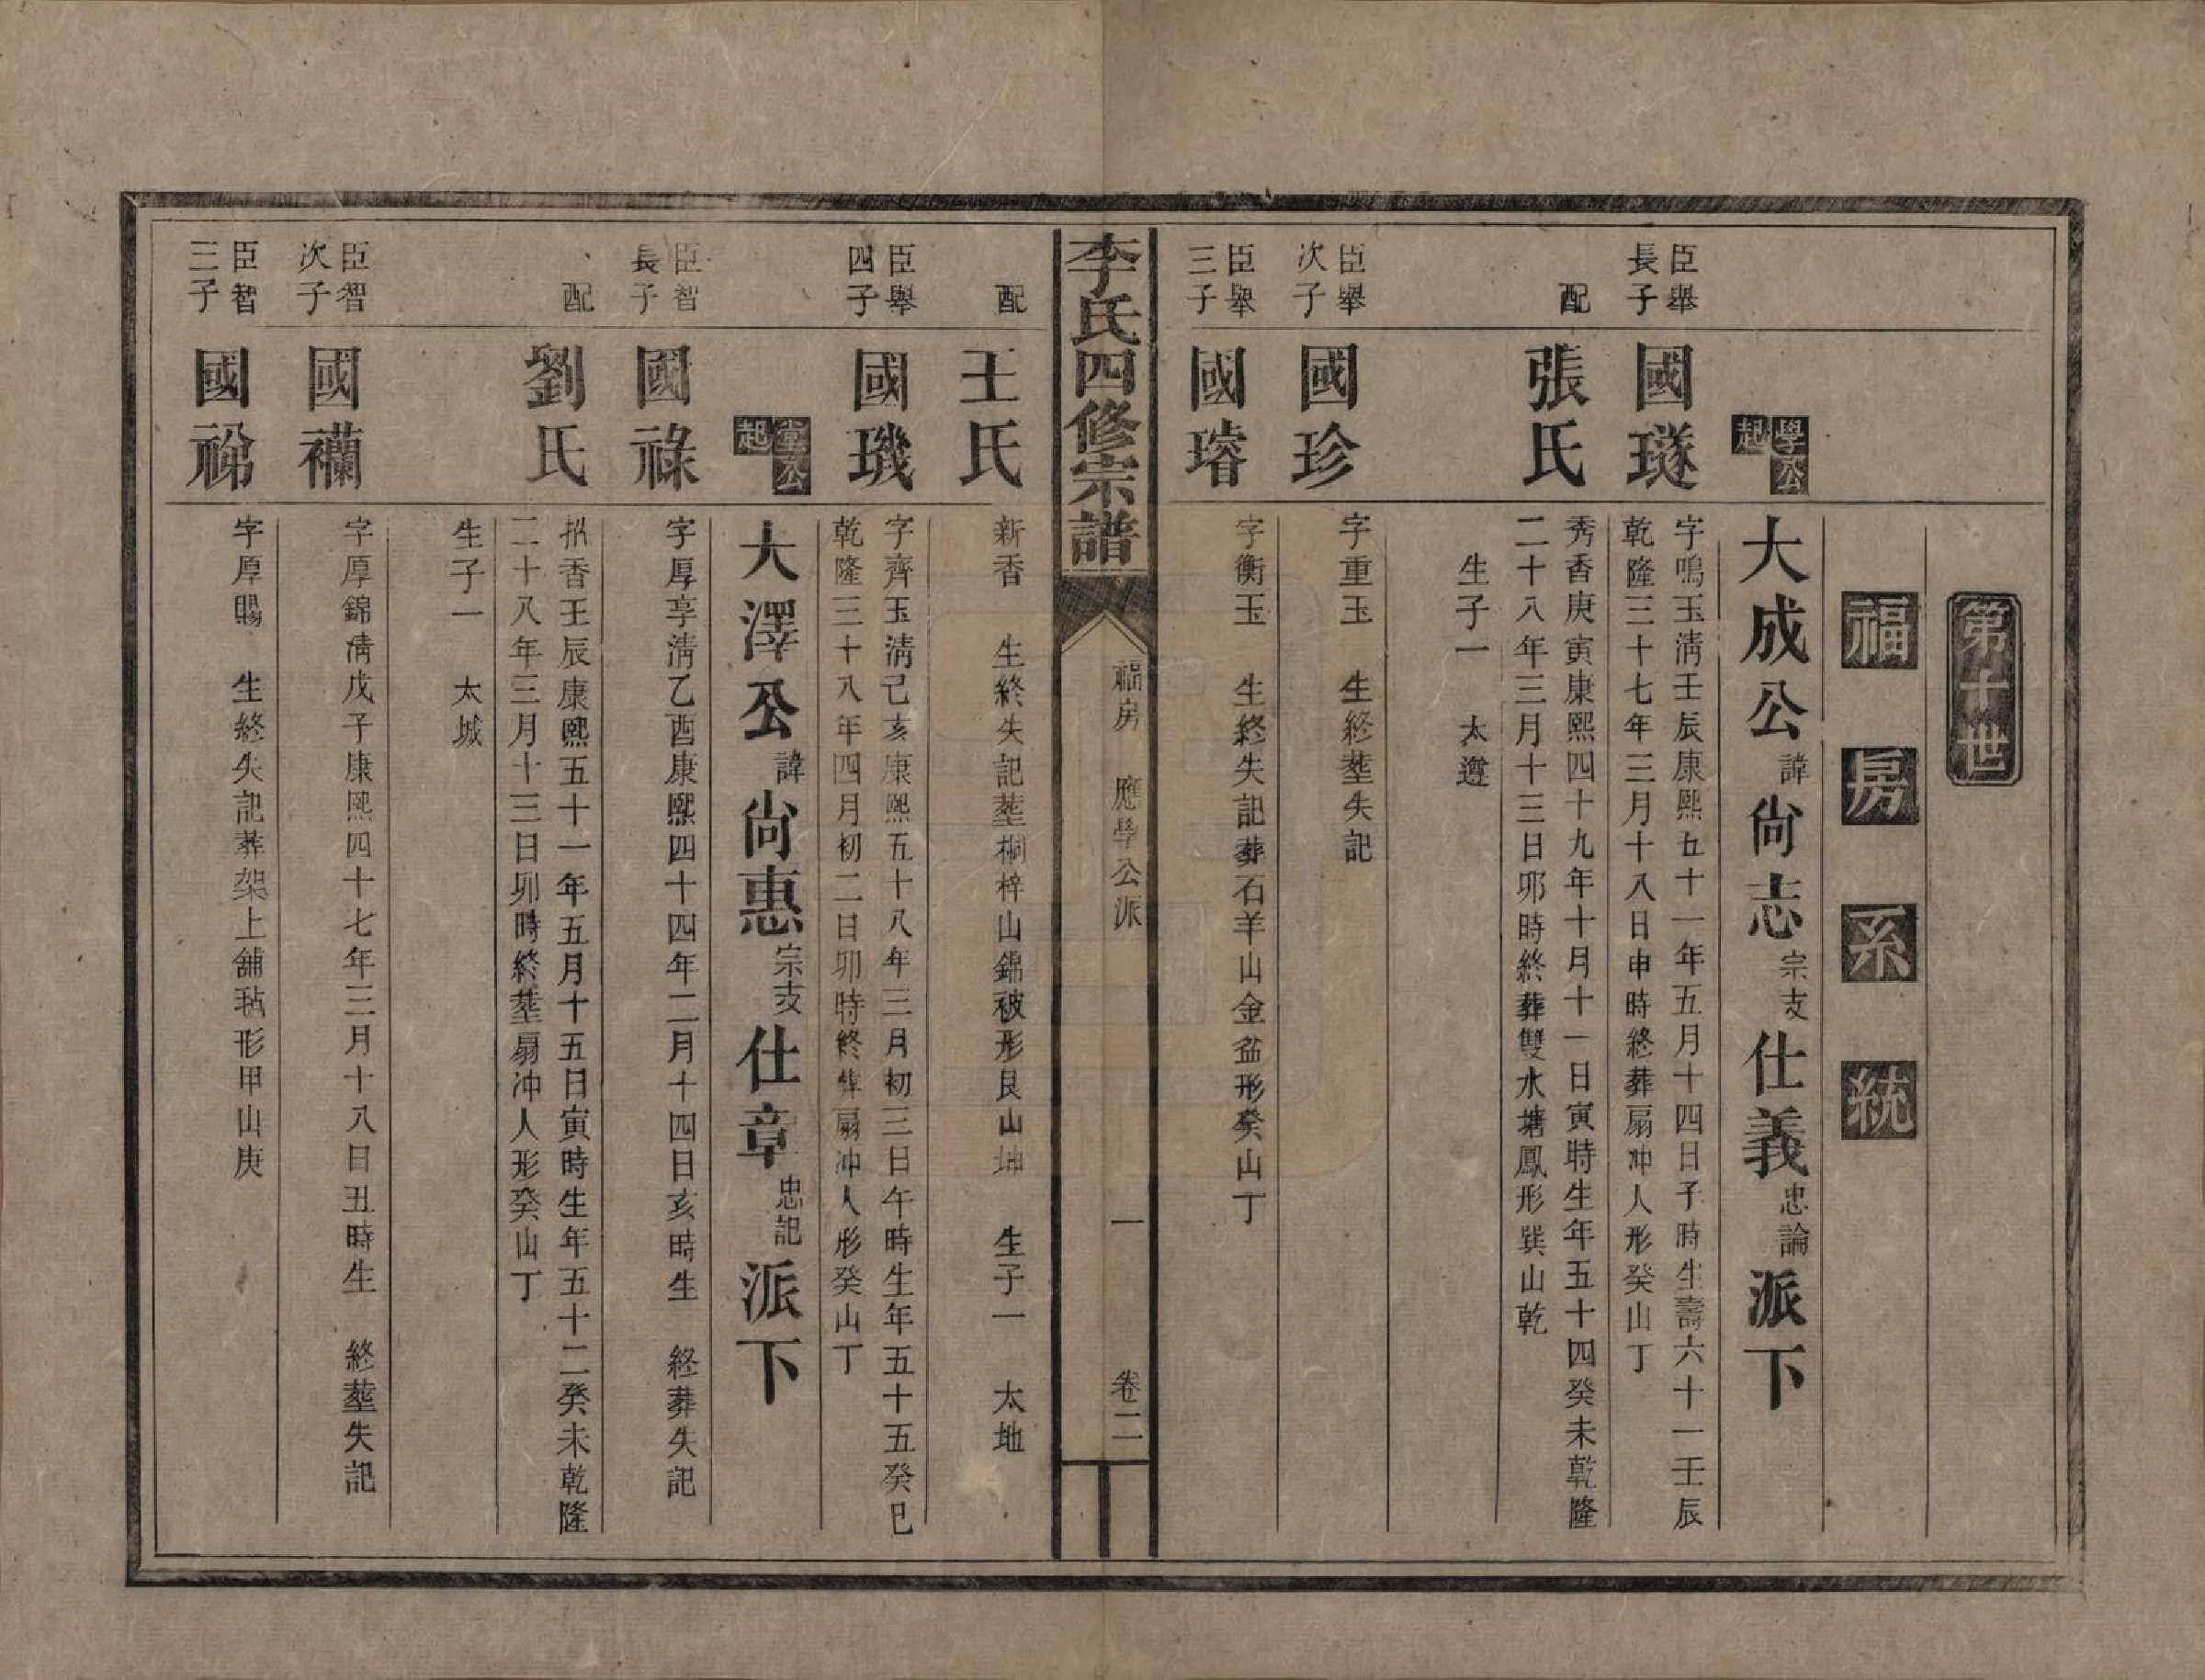 第十世
福房系統
學公起
大成公諱尙志宗支仕義忠論派下
臣舉長子
國璲
字鳴玉淸壬辰康熙五十一年五月十四日子時生壽六十一壬辰
乾隆三十七年三月十八日申時終葬扇冲人形癸山丁
配
張氏
秀香庚寅康熙四十九年十月十一日寅時生年五十四癸未乾隆
二十八年三月十三日卯時終葬雙水塘鳳形巽山乾
生子一 太遵
臣舉次子
國珍
字重玉 生終塟失記
臣舉三子
國璿
字衡玉 生終失記葬石羊山金盆形癸山丁
李氏四修宗譜
福房 應學公派
一
卷二
配
王氏
新香 生終失記塟桐梓山錦被形艮山坤 生子一 太地
臣舉四子
國璣
字齊玉淸己亥康熙五十八年三月初三日午時生年五十五癸巳
乾隆三十八年四月初二日卯時終葬扇冲人形癸山丁
堂公起
大澤公諱尙惠宗支仕章忠記派下
臣智長子
國祿
字厚享淸乙酉康熙四十四年二月十四日亥時生 終葬失記
配
劉氏
招香壬辰康熙五十一年五月十五日寅時生年五十二癸未乾隆
二十八年三月十三日卯時終塟扇冲人形癸山丁
生子一 太城
臣智次子
國襴
字厚錦淸戊子康熙四十七年三月十八日丑時生 終塟失記
臣智三子
國祶
字厚賜 生終失記葬架上舖毡形甲山庚